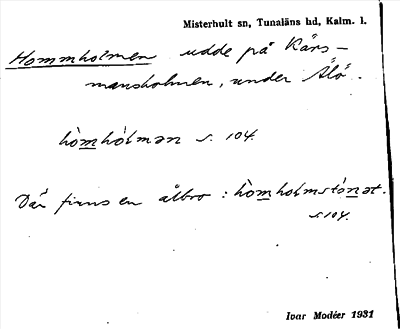 Misterhult sn, Tunaläns hd, Kalm. l.
Hommholmen udde på Kärs-
mansholmen, under Älö.
hòmhólmən s. 104.
Där finns en ålbro : hòmholmstónət.
s. 104.
Ivar Modéer 1931